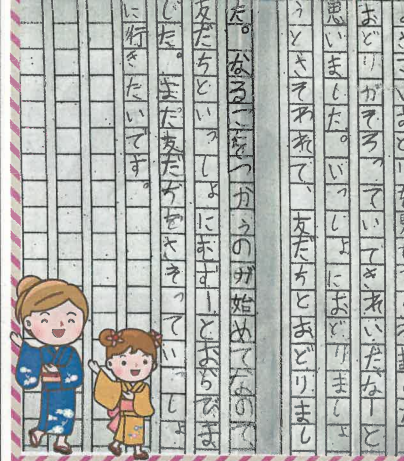 おどりがそろっていてきれいだなーと
思いました。いっしょにおどりましょ
うとさそわれて、友だちとおどりまし
た。なるこをつかうのが始めてなので、
友だちといっしょにむずーとおらびま
した。また友だちをさそっていっしょ
に行きたいです。